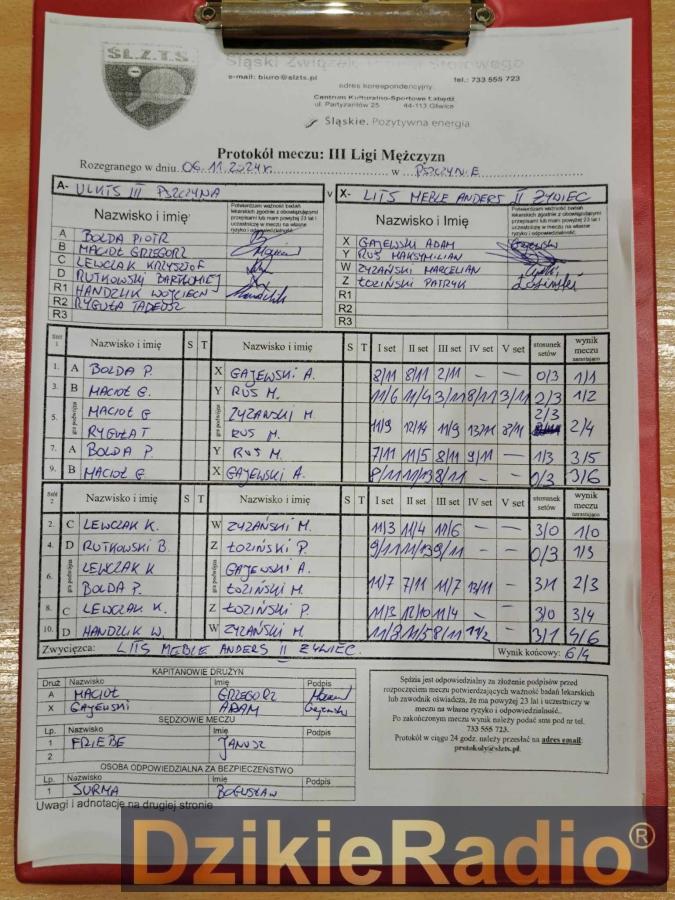 ŚL.Z.T.S.
Śląski Związek Tenisa Stołowego
e-mail: biuro@slzts.pl tel.: 733 555 723
adres korespondencyjny:
Centrum Kulturalno-Sportowe Łabędź
ul. Partyzantów 25 44-113 Gliwice
Śląskie. Pozytywna energia
Protokół meczu: III Ligi Mężczyzn
Rozegranego w dniu. 06.11.2024r. w PSZCZYNIE
A- ULKTS III PSZCZYNA v X- LITS MEBLE ANDERS II ŻYWIEC
Nazwisko i imię Potwierdzam ważność badań lekarskich zgodnie z obowiązującymi przepisami lub mam powyżej 23 lat i uczestniczę w meczu na własne ryzyko i odpowiedzialność. Nazwisko i Imię Potwierdzam ważność badań lekarskich zgodnie z obowiązującymi przepisami lub mam powyżej 23 lat i uczestniczę w meczu na własne ryzyko i odpowiedzialność.
A BOLDA PIOTR X GAJEWSKI ADAM
B MACIOŁ GRZEGORZ Y RUS MAKSYMILIAN
C LEWCZAK KRZYSZTOF W ZYZAŃSKI MARCELIAN
D RUTKOWSKI BARTŁOMIEJ Z ŁOZIŃSKI PATRYK
R1 HANDZLIK WOJCIECH R1
R2 RYGUŁA TADEUSZ R2
R3 R3
Stół 1 Nazwisko i imię S T Nazwisko i imię S T I set II set III set IV set V set stosunek setów wynik meczu narastająco
1. A BOLDA P. X GAJEWSKI A. 8/11 8/11 2/11 – – 0/3 1/1
3. B MACIOŁ G. Y RUS M. 11/6 11/4 3/11 8/11 3/11 2/3 1/2
5. gra podwójna MACIOŁ G ZYZAŃSKI M. 2/3
RYGUŁA T RUS M. 11/9 12/14 11/9 13/11 8/11 2/4
7. A BOLDA P Y RUS M. 7/11 11/5 8/11 9/11 – 1/3 3/5
9. B MACIOŁ G X GAJEWSKI A. 8/11 11/13 8/11 – – 0/3 3/6
Stół 2 Nazwisko i imię S T Nazwisko i imię S T I set II set III set IV set V set stosunek setów wynik meczu narastająco
2. C LEWCZAK K. W ZYZAŃSKI M. 11/3 11/4 11/6 – – 3/0 1/0
4. D RUTKOWSKI B. Z ŁOZIŃSKI P. 9/11 11/13 9/11 – – 0/3 1/3
6. gra podwójna LEWCZAK K GAJEWSKI A.
BOLDA P. ŁOZIŃSKI M. 11/7 7/11 11/7 13/11 – 3/1 2/3
8. C LEWCZAK K. Z ŁOZIŃSKI P. 11/3 12/10 11/4 – – 3/0 3/4
10. D HANDZLIK W. W ZYZAŃSKI M 11/8 11/5 8/11 – 3/1 4/6
Zwycięzca: LITS MEBLE ANDERS II ŻYWIEC. Wynik końcowy: 6/4
KAPITANOWIE DRUŻYN
Druż Nazwisko Imię Podpis
A MACIOŁ GRZEGORZ
X GAJEWSKI ADAM
SĘDZIOWIE MECZU
Lp. Nazwisko Imię Podpis
1 FRIEBE JANUSZ
2
OSOBA ODPOWIEDZIALNA ZA BEZPIECZEŃSTWO
Lp. Nazwisko Imię Podpis
1 SURMA BOGUSŁAW
Uwagi i adnotacje na drugiej stronie
Sędzia jest odpowiedzialny za złożenie podpisów przed
rozpoczęciem meczu potwierdzających ważność badań lekarskich
lub zawodnik oświadcza, że ma powyżej 23 lat i uczestniczy w
meczu na własne ryzyko i odpowiedzialność.
Po zakończonym meczu wynik należy podać sms pod nr tel.
733 555 723.
Protokół w ciągu 24 godz. należy przesłać na adres email:
protokoly@slzts.pl.
DzikieRadio®